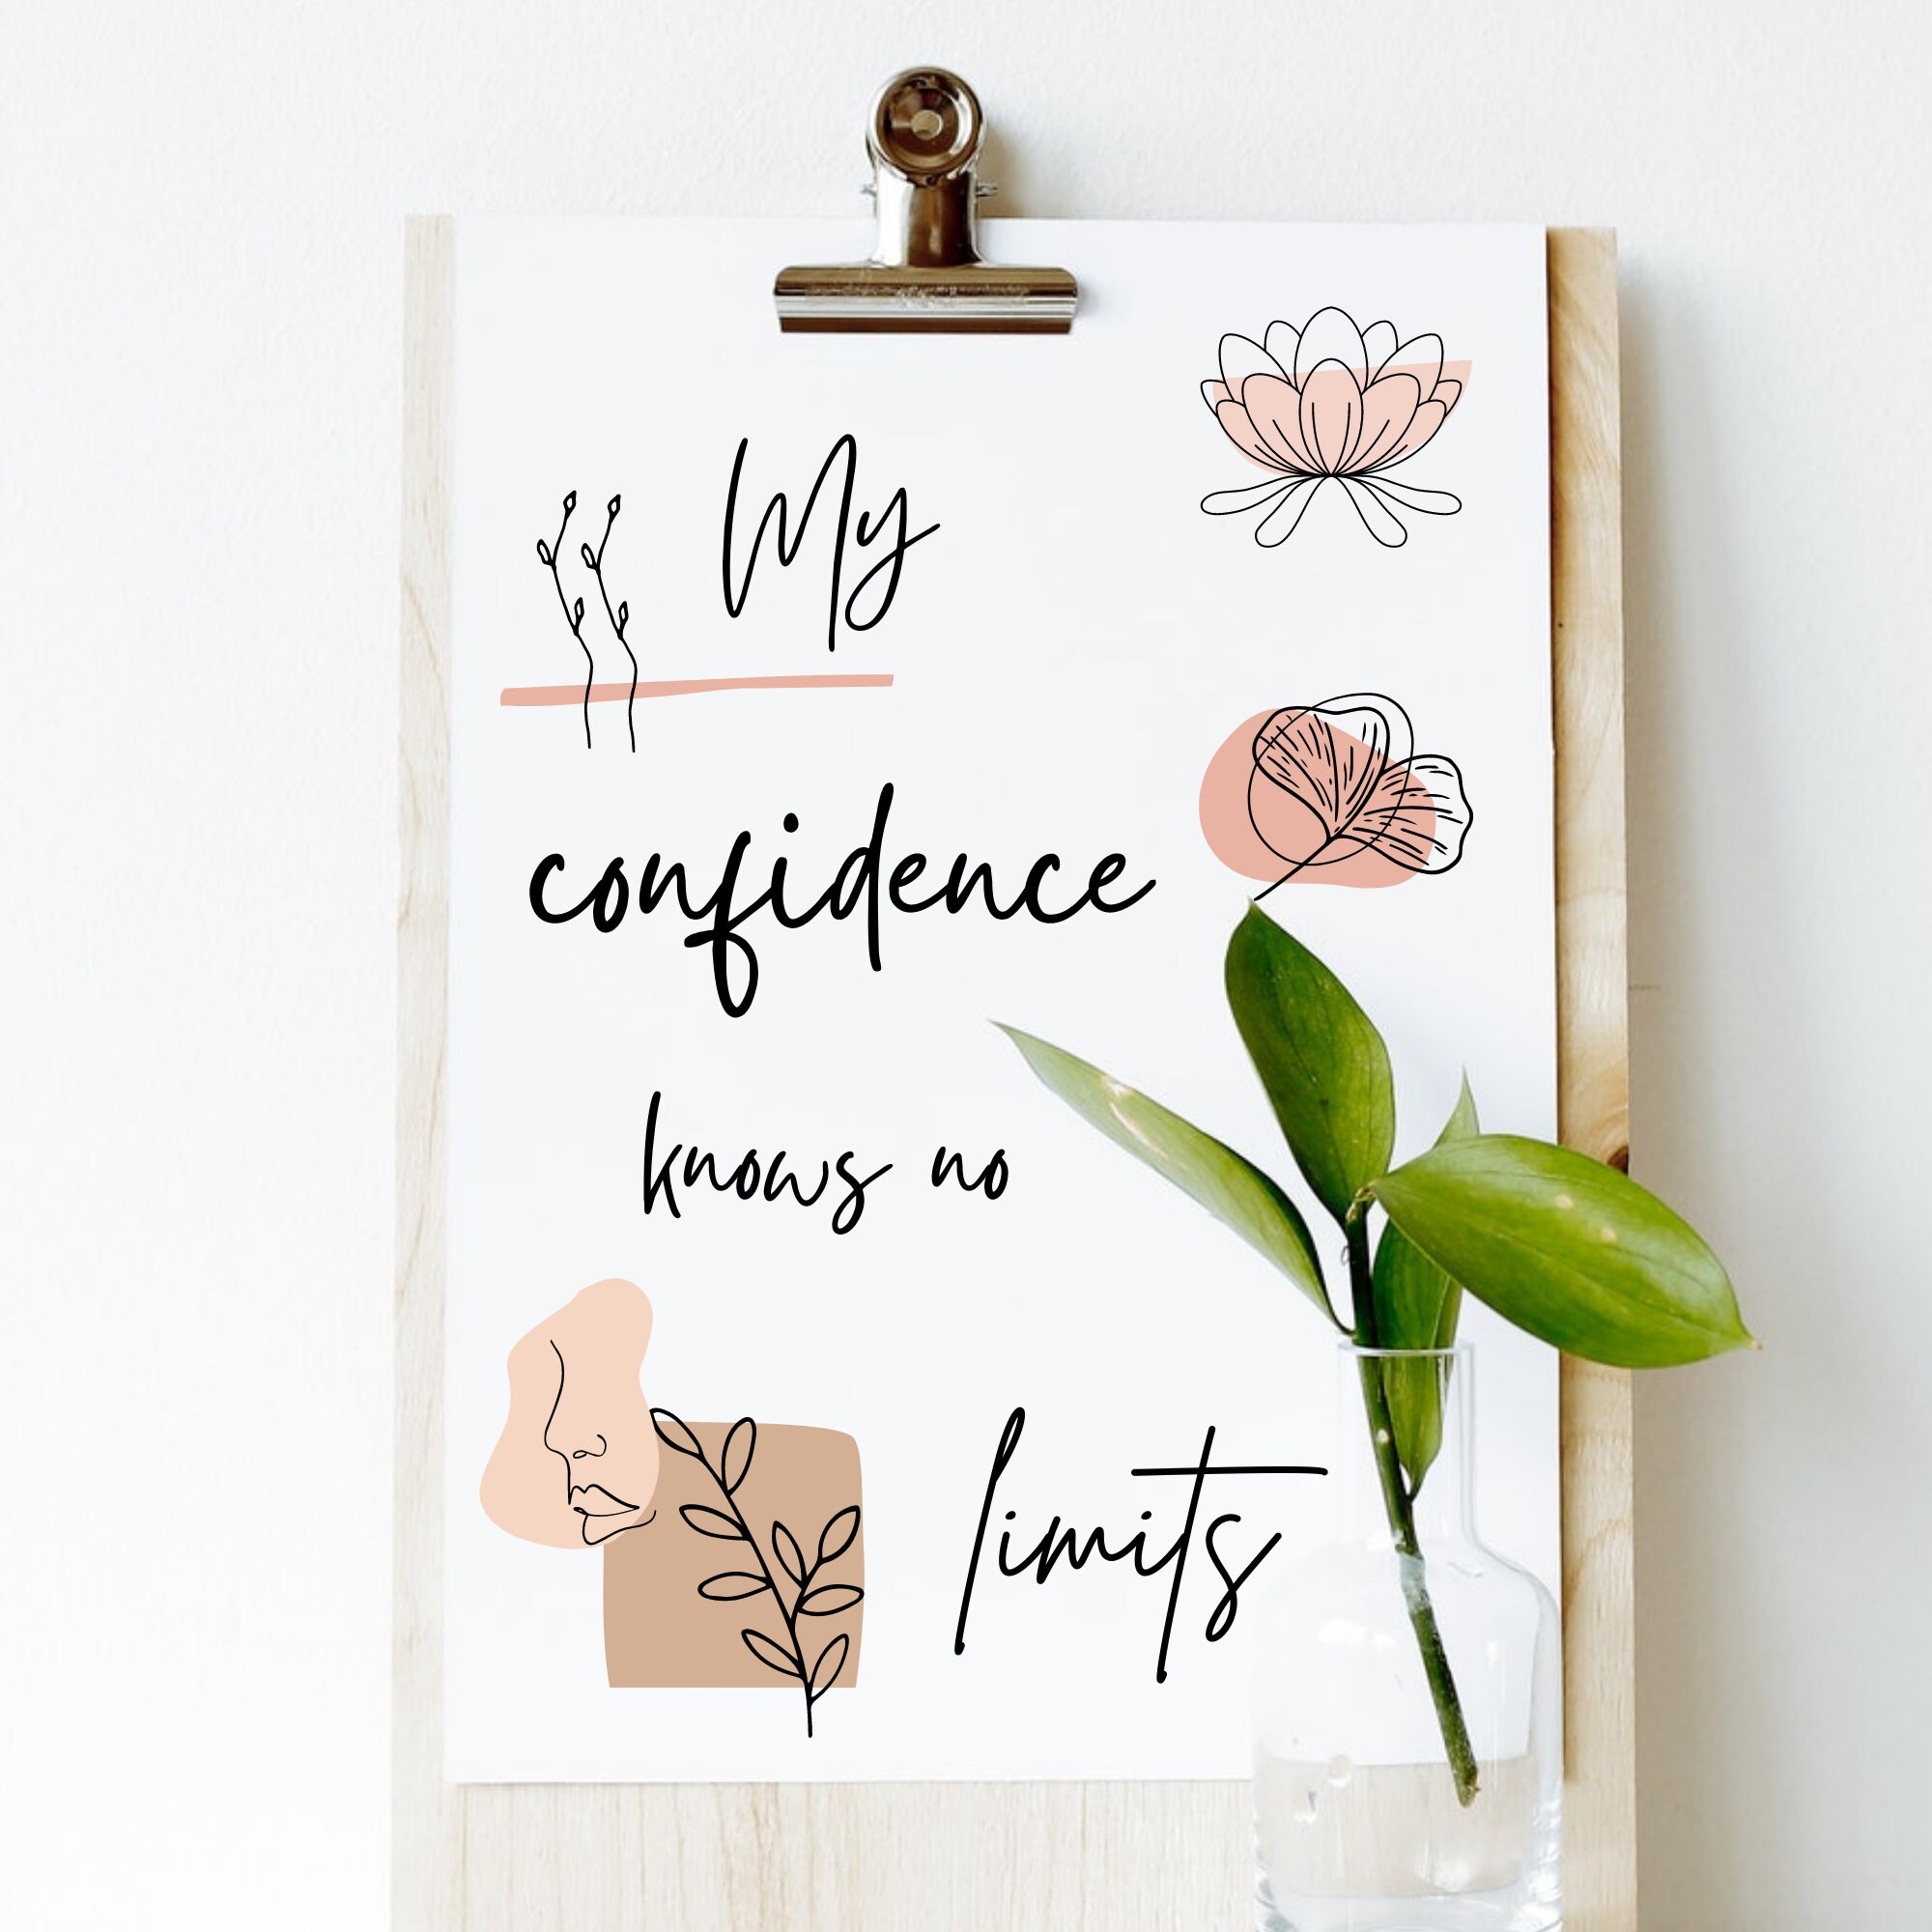 My
confidence
knows no
limits